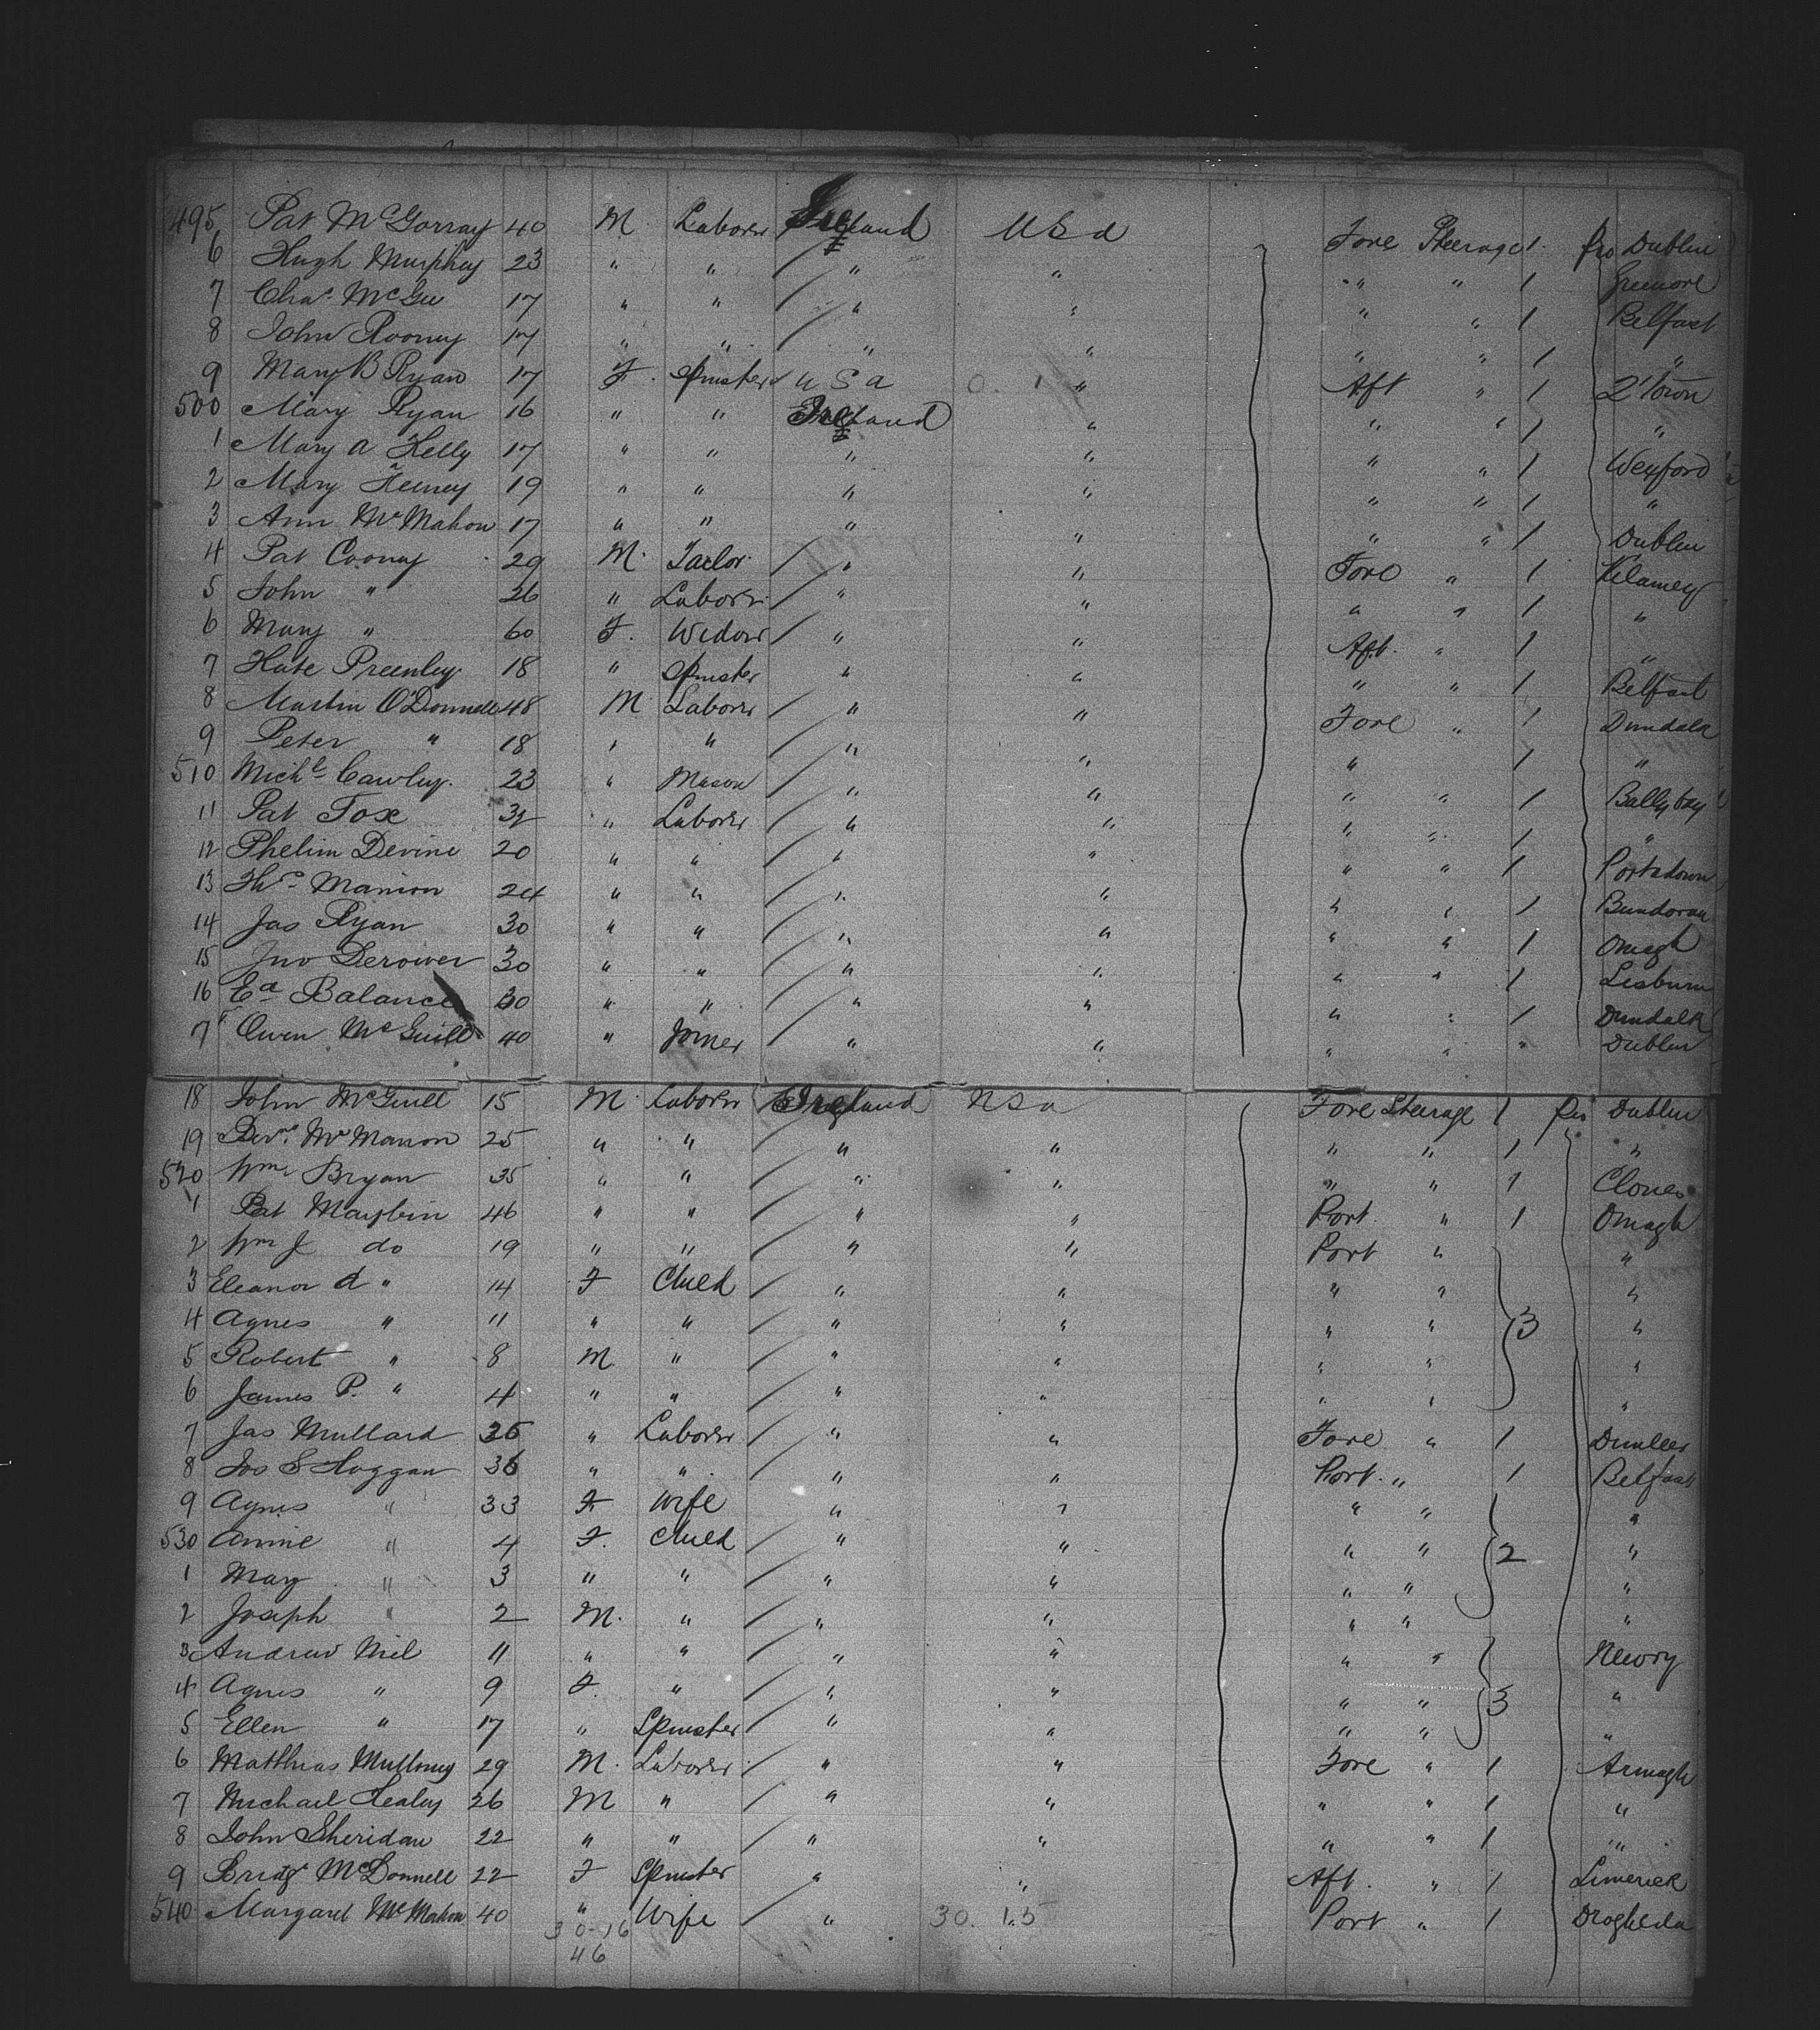 495 Pat McGorray 40 M. Laborer Ireland USA Fore Steerage 1. fro Dublin
6 Hugh Murphey 23 " " / " " " " 1 Greenore
7 Chas McGee 17 " " / " " " " 1 Belfast
8 John Rooney 17 " " / " " " " 1 "
9 Mary B Ryan 17 F. Spinster U S A 0. 1 " Aft " 1 Q'Town
500 Mary Ryan 16 " " Ireland " " " 1 "
1 Mary A Kelly 17 " " " " " " 1 Wexford
2 Mary Feeney 19 " " " " " " 1 "
3 Ann McMahon 17 " " " " " " 1 Dublin
4 Pat Cooney 29 M. Tailor / " " Fore " 1 Kilarney
5 John " 26 " Laborer / " " " " 1 "
6 Mary " 60 F. Widow / " " Aft. " 1 "
7 Kate Preenley 18 " Spinster " " " " 1 Belfast
8 Martin O'Donnell 48 M Laborer / " " Fore " 1 Dundalk
9 Peter " 18 " " / " " " 1 "
510 Michl Cawley. 23 " Mason / " " " " 1 Ballybay
11 Pat Fox 32 " Laborer / " " " " 1 "
12 Phelim Devine 20 " " / " " " " 1 Portadown
13 Thos Manion 24 " " / " " " " 1 Bundoran
14 Jas Ryan 30 " " / " " " " 1 Omagh
15 Jno Derower 30 " " / " " " " 1 Lisburn
16 Ed Balance 30 " " / " " " " 1 Dundalk
7 Owen McGuill 40 " Joiner / " " " " " Dublin
18 John McGuill 15 M. Laborer / Ireland USA Fore Steerage 1 fro Dublin
19 McManon 25 " " / " " " " 1 "
520 Wm Bryan 35 " " / " " " " 1 Clones
1 Pat Maybin 46 " " / " " Port. " 1 Omagh
2 Wm J do 19 " " / " " Port " "
3 Eleanor A " 14 F Child / " " " " "
4 Agnes " 11 " " / " " " " 3 "
5 Robert " 8 M " / " " " " "
6 James P. " 4 " " / " " " " "
7 Jas Mullard 35 " Laborer / " " Fore " 1 Dunleer
8 Jos S Hoggan 36 " " / " " Port. " 1 Belfast
9 Agnes " 33 F. Wife " " " " "
530 Annie " 4 F. Child / " " " " 2 "
1 Mary " 3 " " / " " " " "
2 Joseph " 2 M. " / " " " " "
3 Andrew Niel 11 " " / " " " " Newry
4 Agnes " 9 F. " / " " " " 3 "
5 Ellen " 17 " Spinster / " " " " "
6 Matthias Mulloney 29 M. Laborer / " " Fore " 1 Armagh
7 Michael Healey 26 M " / " " " " 1 "
8 John Sheridan 22 " " / " " " " 1 "
9 Bridgt McDonnell 22 F Spinster " " Aft. " 1 Limerick
540 Margaret McMahon 40 " Wife / " 30. 15 Port " 1 Drogheda
30-16
46